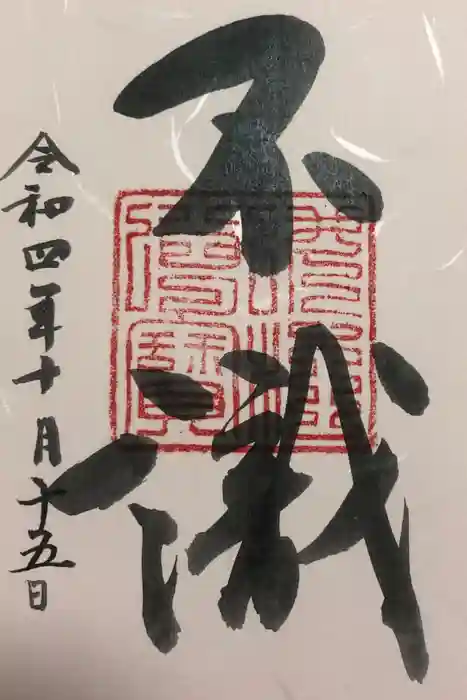 不識
令和四年十月十五日